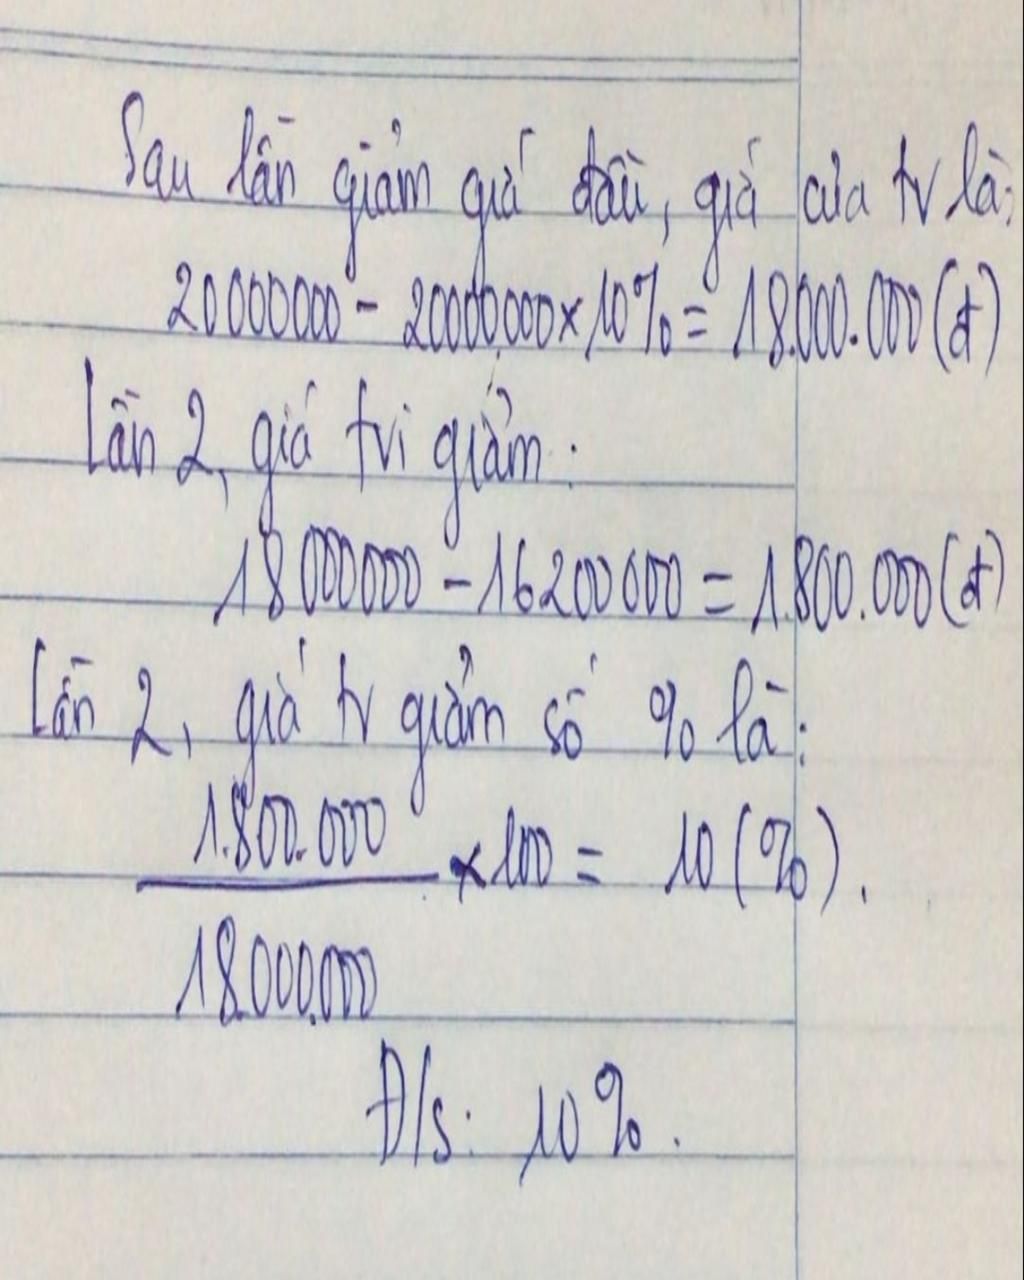 Sau lần giảm giá đầu, giá của tv là:
20000000 - 20000000 x 10% = 18.000.000 (đ)
Lần 2, giá tvi giảm:
18000000 - 16200000 = 1.800.000 (đ)
Lần 2, giá tv giảm số % là:
1.800.000
x 100 = 10 (%).
18.000.000
Đ/s: 10%.